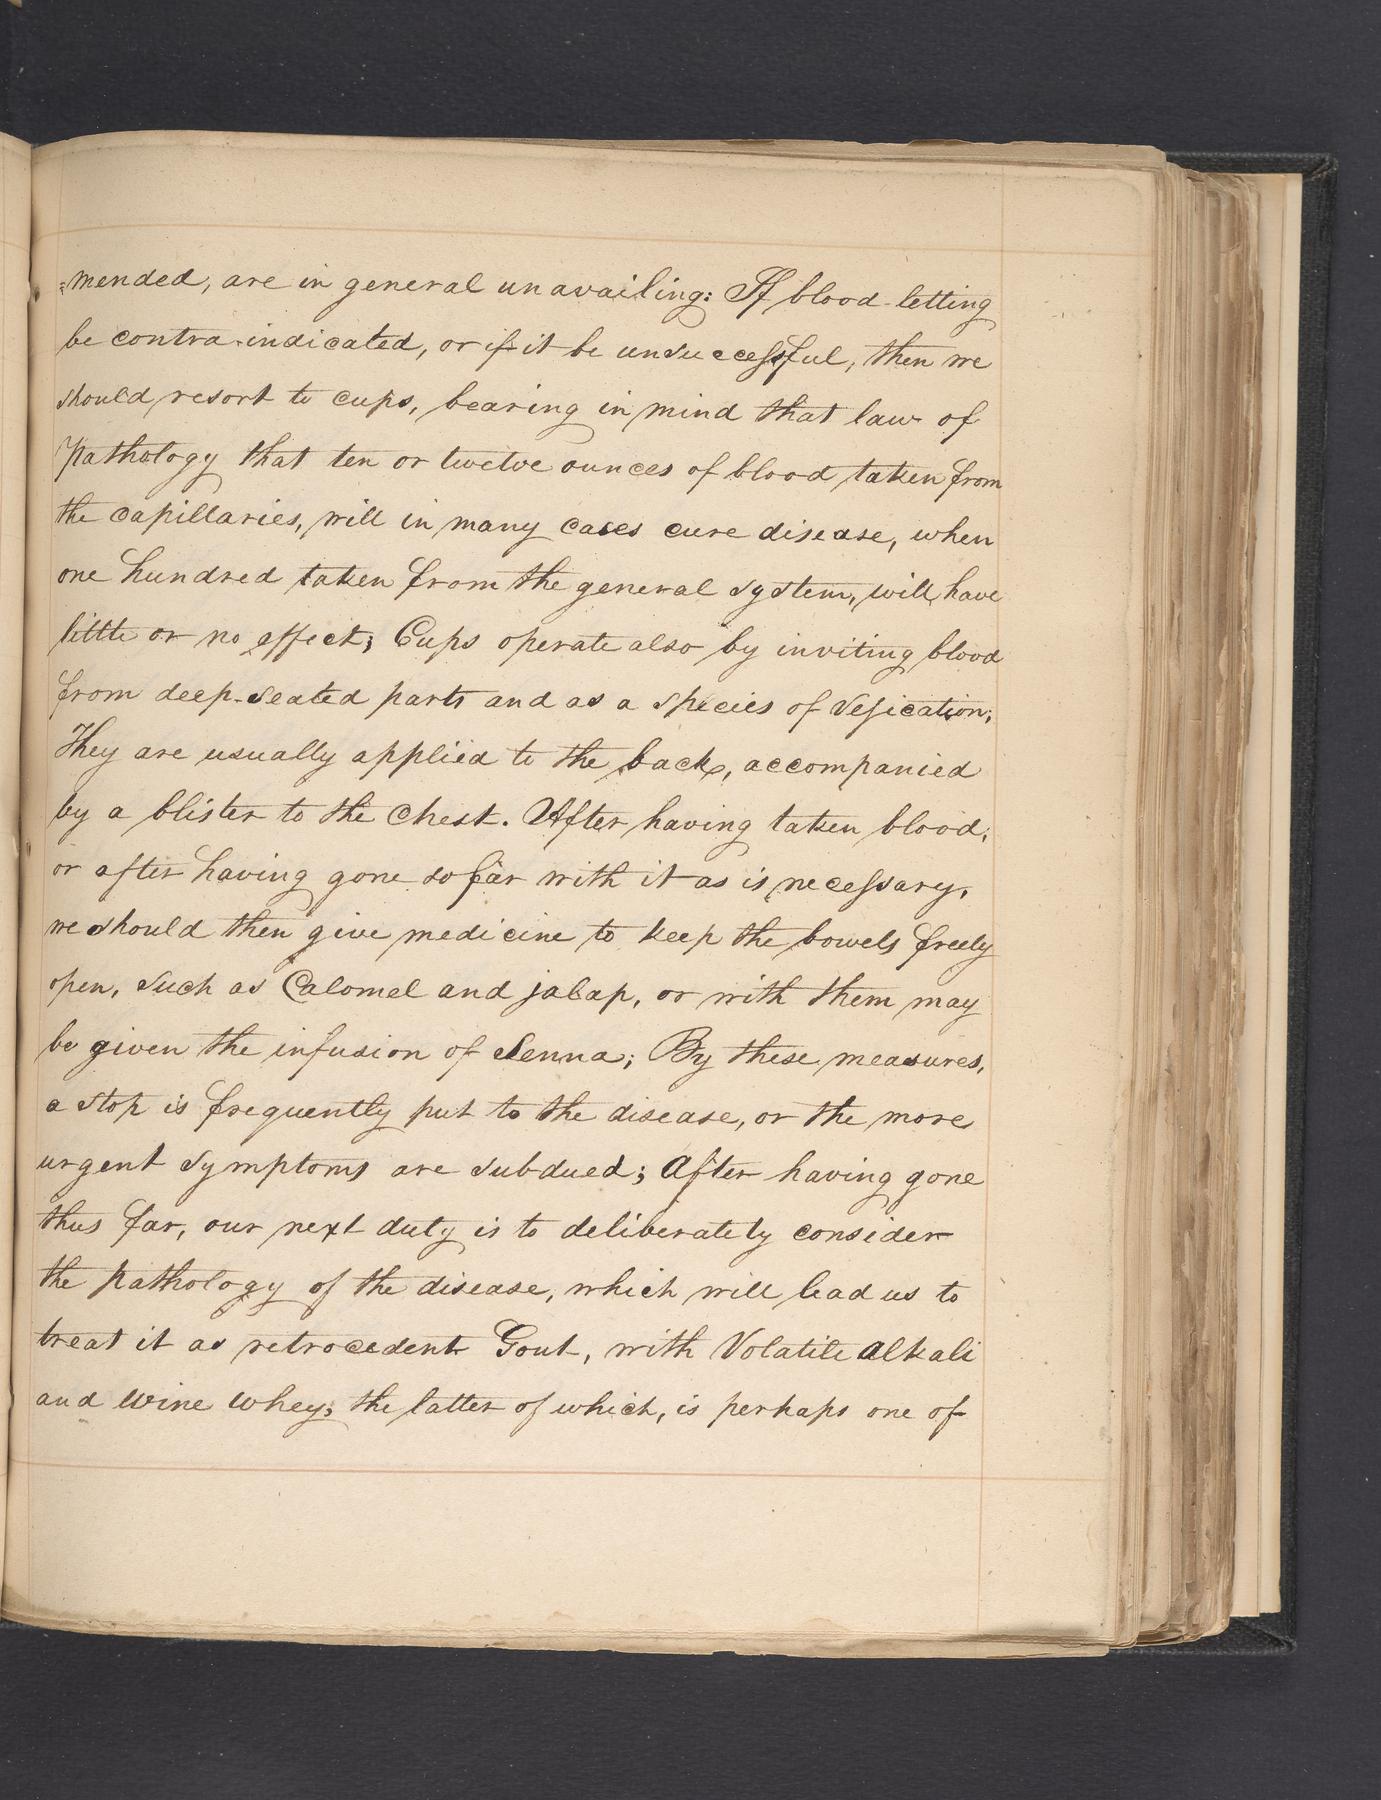 =mended, are in general unavailing: If blood-letting
be contra-indicated, or if it be unsuccessful, then we
should resort to cups, bearing in mind that law of
Pathology that ten or twelve ounces of blood taken from
the capillaries, will in many cases cure disease, when
one hundred taken from the general system, will have
little or no effect; Cups operate also by inviting blood
from deep-seated parts and as a species of Vesication;
They are usually applied to the back, accompanied
by a blister to the Chest. After having taken blood;
or after having gone so far with it as is necessary,
we should then give medicine to keep the bowels freely
open, such as Calomel and jalap, or with them may
be given the infusion of Senna; By these measures,
a stop is frequently put to the disease, or the more
urgent symptoms are subdued; After having gone
thus far, our next duty is to deliberately consider
the pathology of the disease, which will lead us to
treat it as retrocedent Gout, with Volatile Alkali
and Wine Whey; the latter of which, is perhaps one of